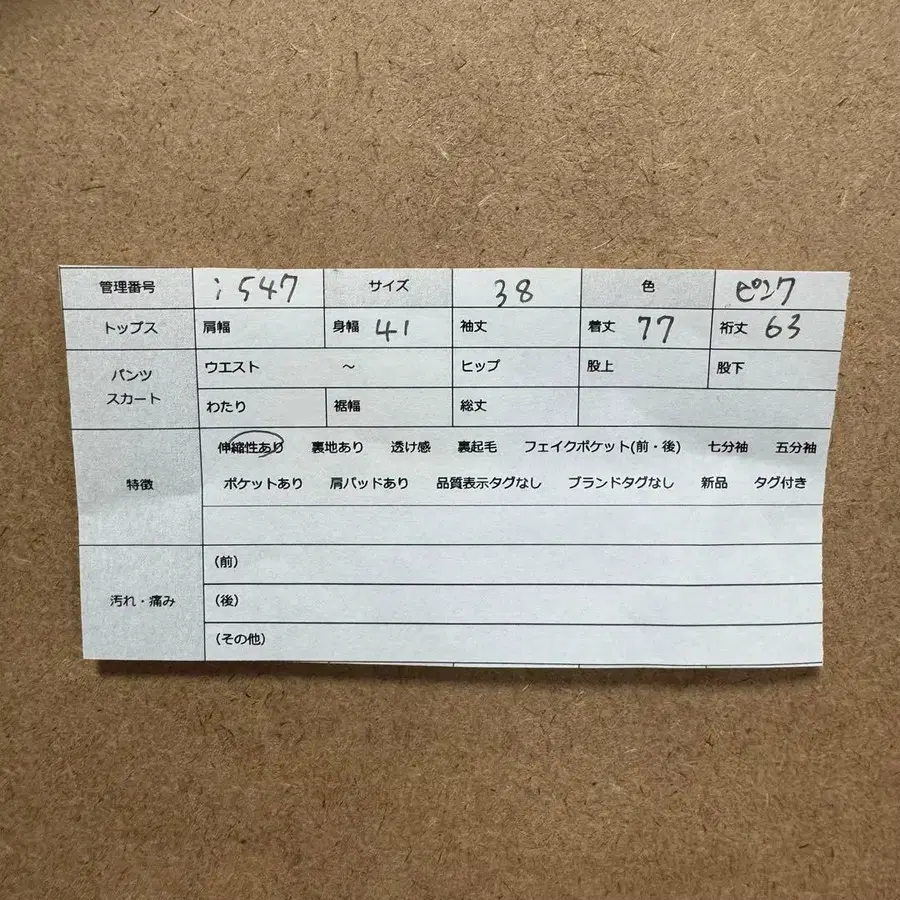 管理番号 i547 サイズ 38 色 ピンク
トップス 肩幅 身幅 41 袖丈 着丈 77 裄丈 63
パンツ スカート
ウエスト ～ ヒップ 股上 股下
わたり 裾幅 総丈
特徴
伸縮性あり 裏地あり 透け感 裏起毛 フェイクポケット(前・後) 七分袖 五分袖
ポケットあり 肩パッドあり 品質表示タグなし ブランドタグなし 新品 タグ付き
汚れ・痛み
（前）
（後）
（その他）